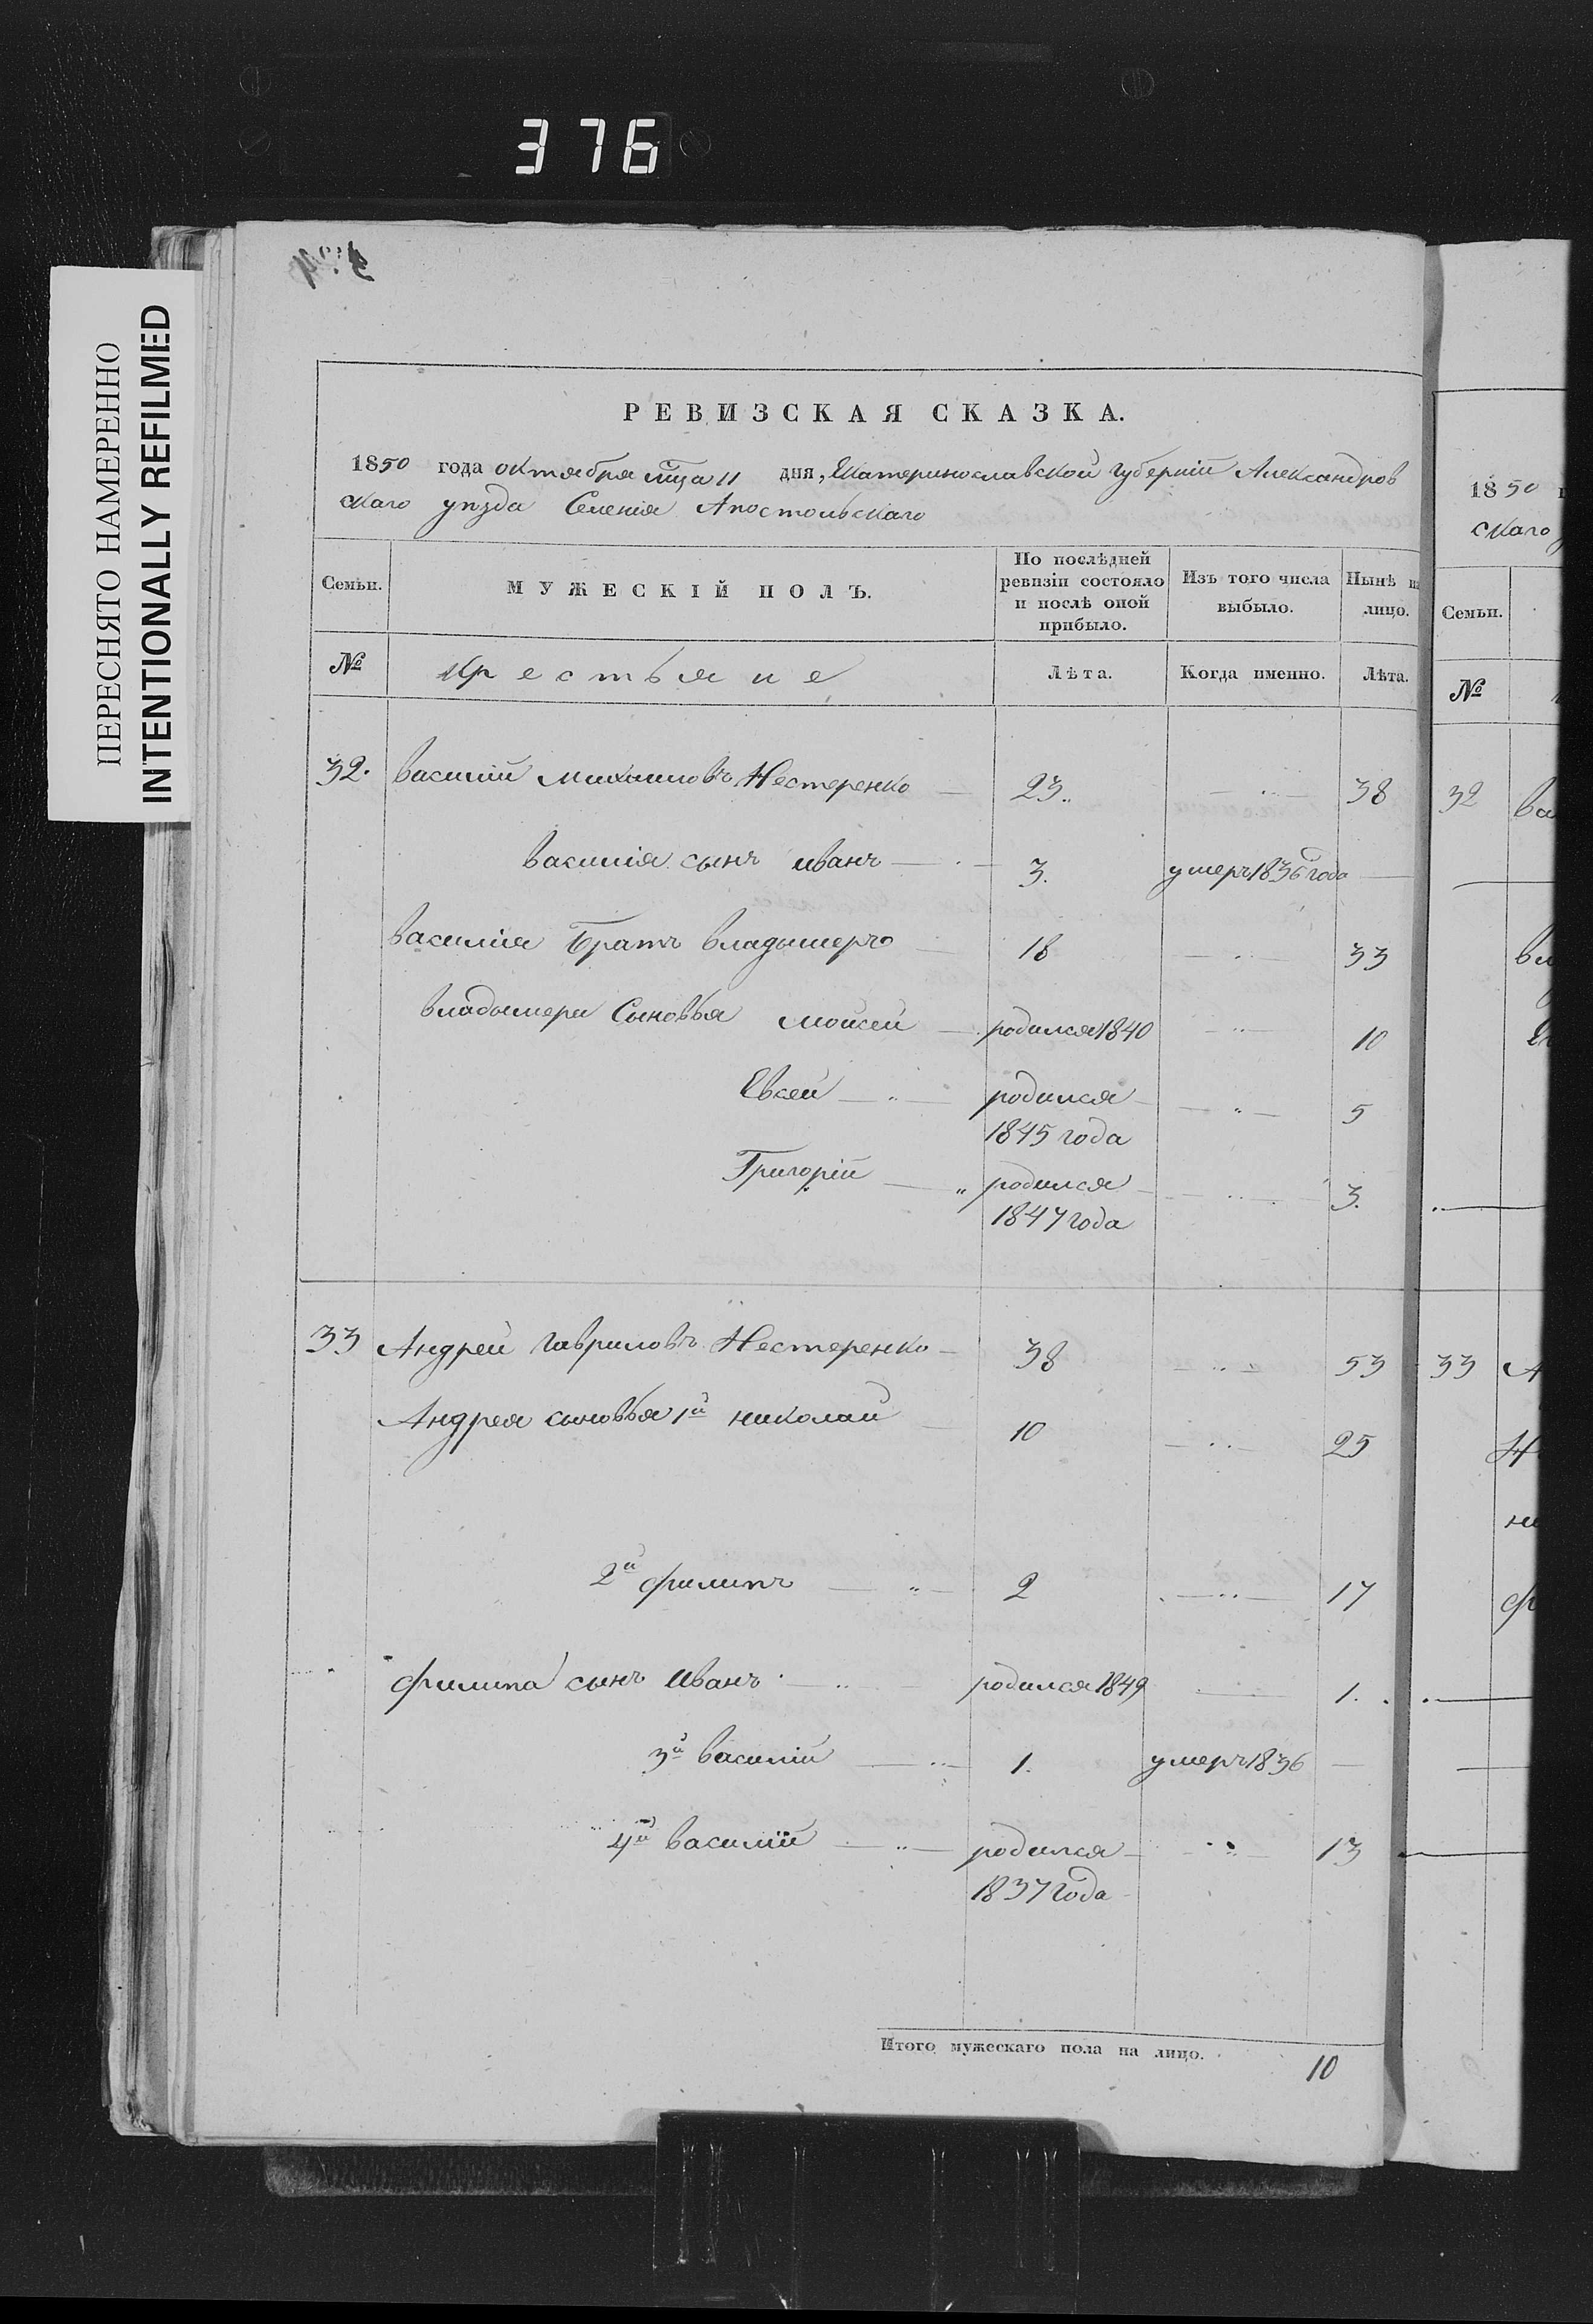 376
ПЕРЕСНЯТО НАМЕРЕННО
INTENTIONALLY REFILMED
РЕВИЗСКАЯ СКАЗКА.
1850 года октября мца 11 дня, Екатеринославской губерніи Александров
скаго уѣзда Селенія Апостольскаго
Семьи.
МУЖЕСКІЙ ПОЛЪ.
По послѣдней ревизіи состояло и послѣ оной прибыло.
Изъ того числа выбыло.
Нынѣ на лицо.
№
Крестьяне
Лѣта.
Когда именно.
Лѣта.
32. василій михаиловъ Нестеренко 23. 38
василія сынъ иванъ 3. умеръ 1836 года
василія братъ владымеръ 18 33
владымера Сыновья моисей родился 1840 10
Евсей родился 5
1845 года
Григорій родился 3.
1847 года
33 Андрей гавриловъ Нестеренко 38 53
Андрея сыновья 1й николай 10 25
2й филипъ 2 17
филипа сынъ иванъ родился 1849 1.
3й василій 1. умеръ 1836
4й василій родился 13
1837 года
Итого мужескаго пола на лицо. 10
1850
скаго
Семьи.
№
32
33